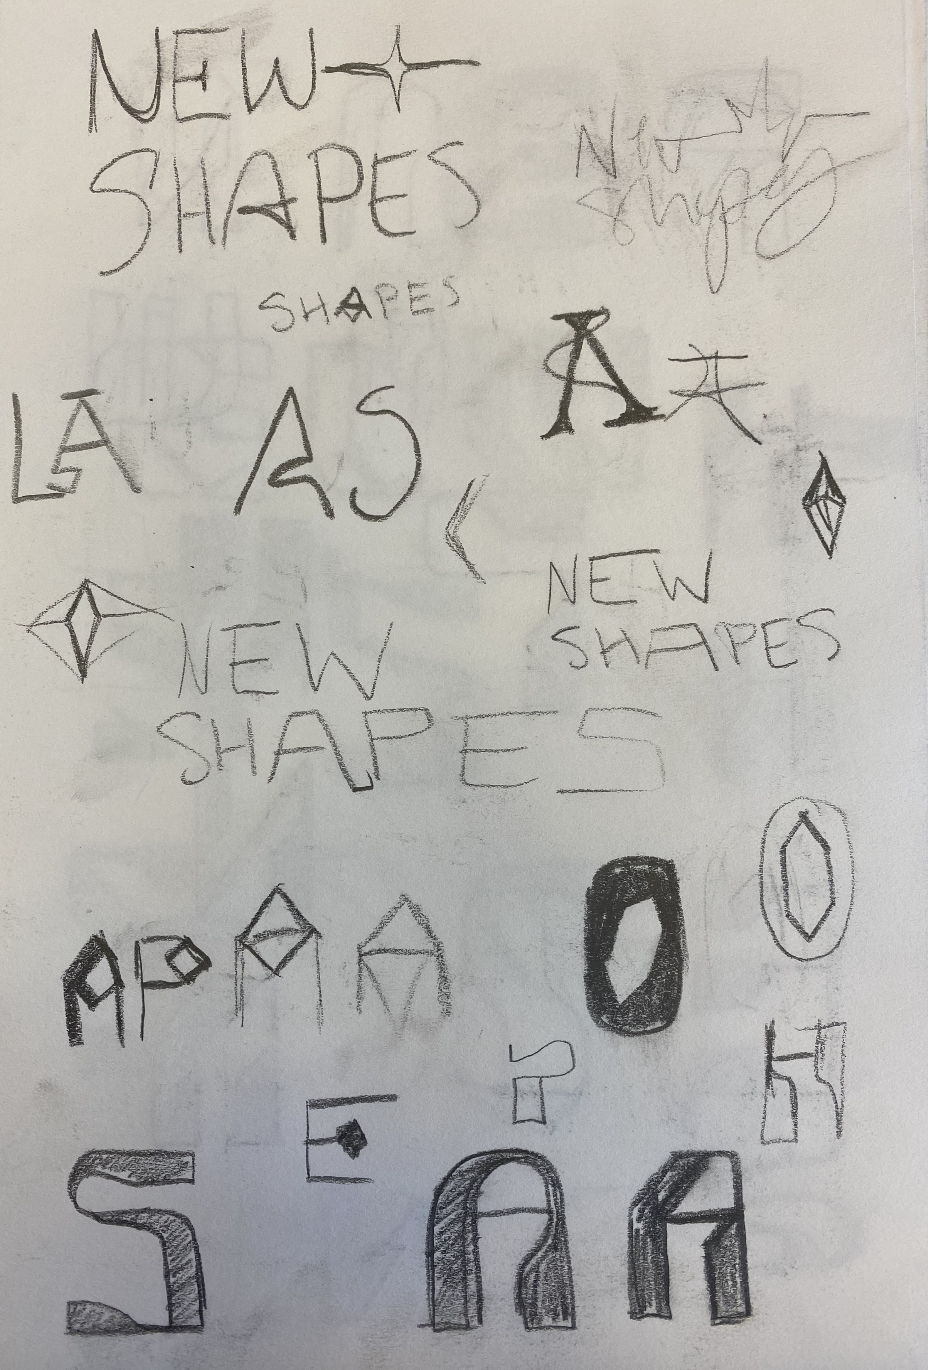 NEW
SHAPES
New
Shapes
SHAPES
A A
LA AS
NEW
SHAPES
NEW
SHAPES
A P A A
O O
P
H
E
S A A